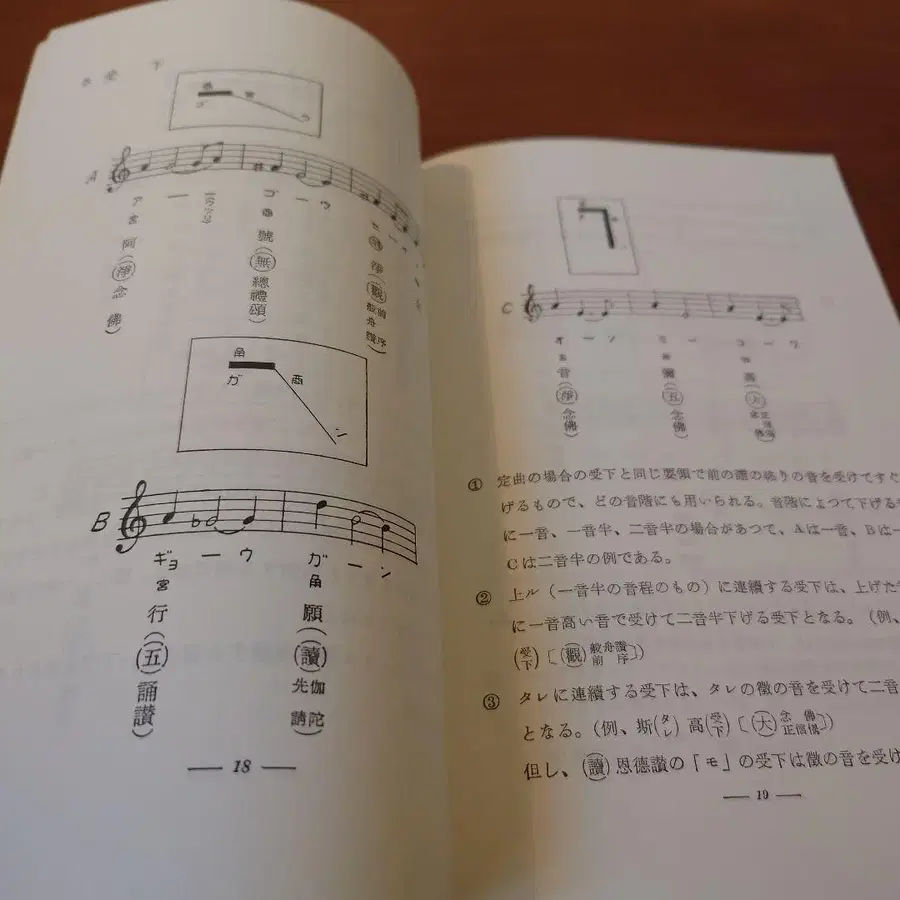 受下
商 宮
ゴ ウ
A
ア ー
宮
阿
(淨)念佛)
ゴ ー ウ
商
號
(無)總禮頌)
セ ー
淨
(觀)般舟讚前序)
角 商
ガ ン
B
ギョ ー ウ
宮
行
(五)誦讃)
ガ ー ン
角
願
(讀)先伽請陀)
— 18 —
C
オ ー ン
宮
音
(淨)念佛)
ミ ー
宮
彌
(五)念佛)
コ ー ウ
高
(大)念佛正信偈)
① 定曲の場合の受下と同じ要領で前の譜の終りの音を受けてすぐ
げるもので、どの音階にも用いられる。音階によつて下げる
に一音、一音半、二音半の場合があつて、Aは一音、Bは一
Cは二音半の例である。
② 上ル（一音半の音程のもの）に連續する受下は、上げた
に一音高い音で受けて二音半下げる受下となる。（例、
(受下)〔(觀)般舟讚前序〕)
③ タレに連續する受下は、タレの徵の音を受けて二音
となる。（例、斯(タレ)高(受下)〔(大)念佛正信偈〕)
但し、(讀)恩德讃の「モ」の受下は徵の音を受け
— 19 —